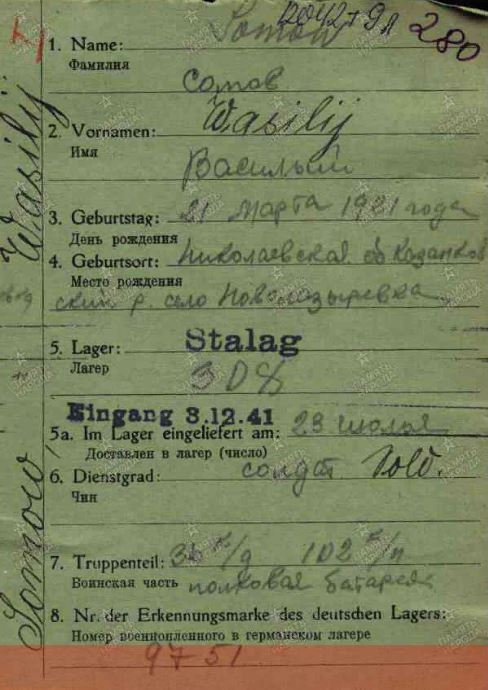 280
1. Name: Somow
Фамилия
Сомов
2. Vornamen: Wasilij
Имя
Василый
3. Geburtstag: 21 марта 1921 года
День рождения
4. Geburtsort: Николаевская об Казанков
Место рождения
ский р. село Новолазыревка
5. Lager: Stalag
Лагер
Eingang 3.12.41
5a. Im Lager eingeliefert am: 23 июля
Доставлен в лагер (число)
6. Dienstgrad: солдт Sold.
Чин
7. Truppenteil: 102
Воинская часть полковая батарея
8. Nr. der Erkennungsmarke des deutschen Lagers:
Номер военнопленного в германском лагере
9751
Somow Wasilij